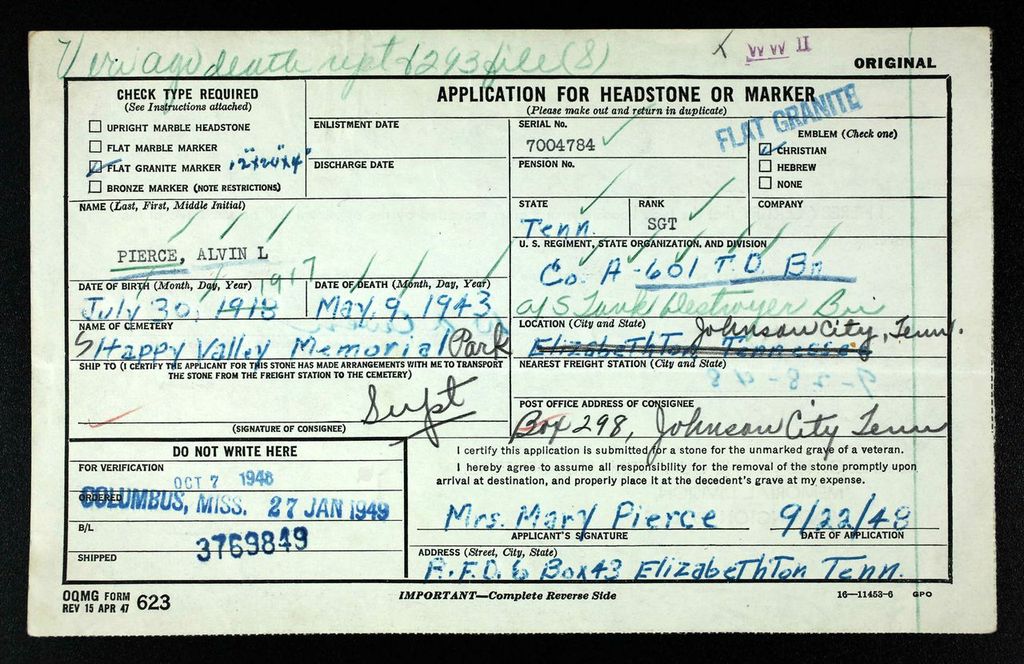 Veri ago death rept 293 file (S)
X WW II
ORIGINAL
CHECK TYPE REQUIRED
(See Instructions attached)
UPRIGHT MARBLE HEADSTONE
FLAT MARBLE MARKER
FLAT GRANITE MARKER 12"x24"x4"
BRONZE MARKER (NOTE RESTRICTIONS)
APPLICATION FOR HEADSTONE OR MARKER
(Please make out and return in duplicate)
FLAT GRANITE
ENLISTMENT DATE
DISCHARGE DATE
SERIAL No.
7004784
PENSION No.
EMBLEM (Check one)
CHRISTIAN
HEBREW
NONE
NAME (Last, First, Middle Initial)
PIERCE, ALVIN L
STATE
Tenn.
RANK
SGT
COMPANY
U. S. REGIMENT, STATE ORGANIZATION, AND DIVISION
Co. A - 601 T. D. Bn
a/S Tank Destroyer Bn
DATE OF BIRTH (Month, Day, Year)
1917
July 30, 1918
DATE OF DEATH (Month, Day, Year)
May, 9, 1943
NAME OF CEMETERY
Happy Valley Memorial Park
LOCATION (City and State)
Johnson City, Tenn.
Elizabethton Tennessee
SHIP TO (I CERTIFY THE APPLICANT FOR THIS STONE HAS MADE ARRANGEMENTS WITH ME TO TRANSPORT
THE STONE FROM THE FREIGHT STATION TO THE CEMETERY)
Supt
(SIGNATURE OF CONSIGNEE)
NEAREST FREIGHT STATION (City and State)
POST OFFICE ADDRESS OF CONSIGNEE
Box 298, Johnson City Tenn
DO NOT WRITE HERE
FOR VERIFICATION
OCT 7 1948
ORDERED
COLUMBUS, MISS. 27 JAN 1949
B/L
3769849
SHIPPED
I certify this application is submitted for a stone for the unmarked grave of a veteran.
I hereby agree to assume all responsibility for the removal of the stone promptly upon
arrival at destination, and properly place it at the decedent's grave at my expense.
Mrs. Mary Pierce 9/22/48
APPLICANT'S SIGNATURE DATE OF APPLICATION
ADDRESS (Street, City, State)
R.F.D. 6 Box 43 Elizabethton Tenn.
OQMG FORM
REV 15 APR 47 623
IMPORTANT—Complete Reverse Side
16—11453-6 GPO